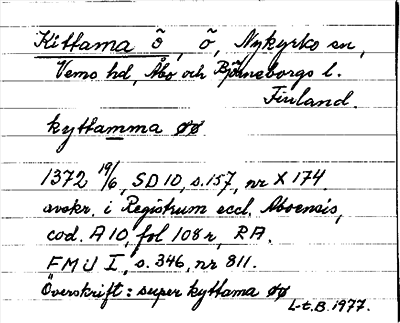 Kittama ö, ö, Nykyrko sn,
Vemo hd, Åbo och Björneborgs l.
Finland.
kyttamma øø
1372 19/6, SD 10, s. 157, nr X 174.
avskr. i Registrum eccl. Aboensis,
cod. A 10, fol 108 r, RA.
FMU I, s. 346, nr 811.
Överskrift: super kyttama øø
L-t.B. 1977.